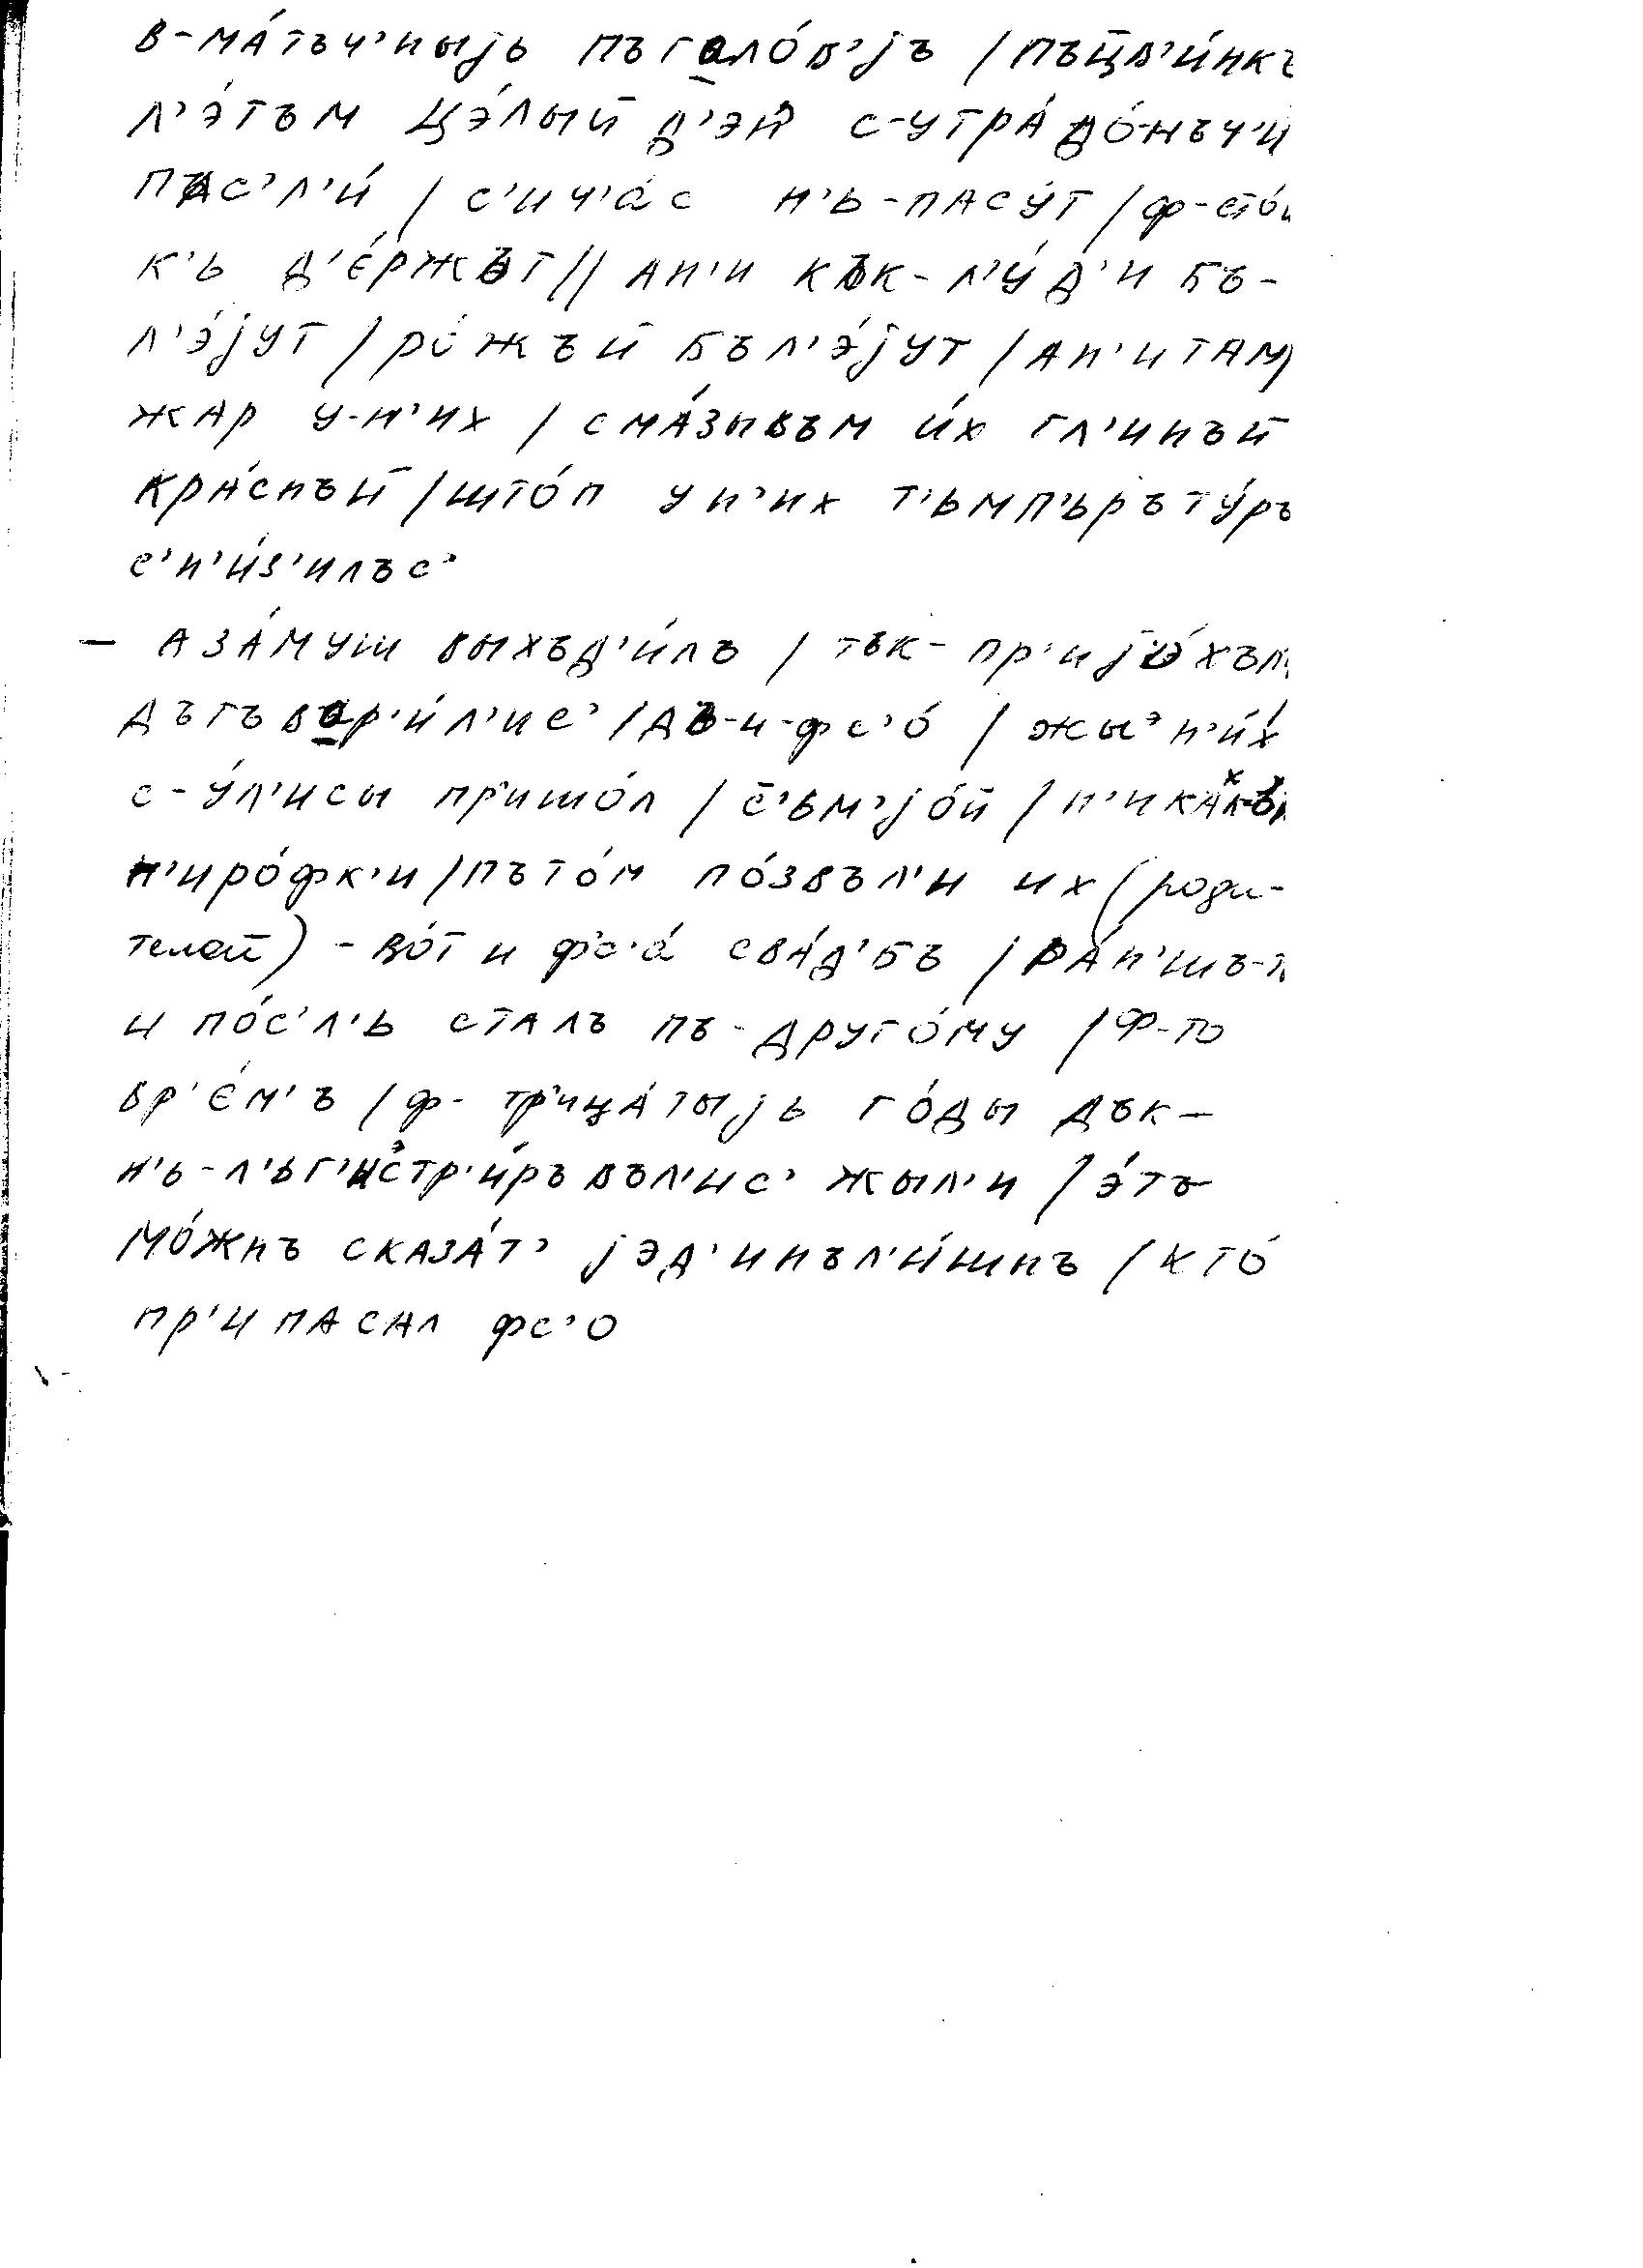 в-ма́тъч'ныjь пъгало́в'jъ / пъцв'и́нкъ
л'э́тъм цэ́лый д'эн' с-утра́ до́-нъч'и
пас'л'и́ / с'ич'а́с н'ь-пасу́т / ф-сто́й
к'ь д'е́ржът // ан'и кък-л'у́д'и бъ-
л'э́jут / ро́жъй бъл'э́jут / ан'и там
жар у-н'их / сма́зывъм и́х гл'инъй
кра́снъй / што́п у н'их т'ьмп'ьръту́ръ
с'н'и́з'илъс'
— а за́муш выхъд'и́лъ / тък-пр'иjэ́хъл
дъгъвар'и́л'ис' / дъ-и-фс'о́ / жы^эн'и́х
с-у́л'исы пр'ишо́л / с'ьм'jо́й / н'ика
н'иро́фк'и / пъто́м по́звъл'и их (роди-
телей) - во́т и фс'а́ сва́д'бъ / ра́н'шъ-т
и по́с'л'ь сталъ пъ-друго́му / ф-то
вр'е́м'ъ / ф-тр'ица́тыjь го́ды дък-
н'ь-л'ьг'истр'и́ръвъл'ис' жыл'и / э́тъ
мо́жнъ сказа́т' jэд'инъл'и́шнъ / кто́
пр'ипасал фс'о